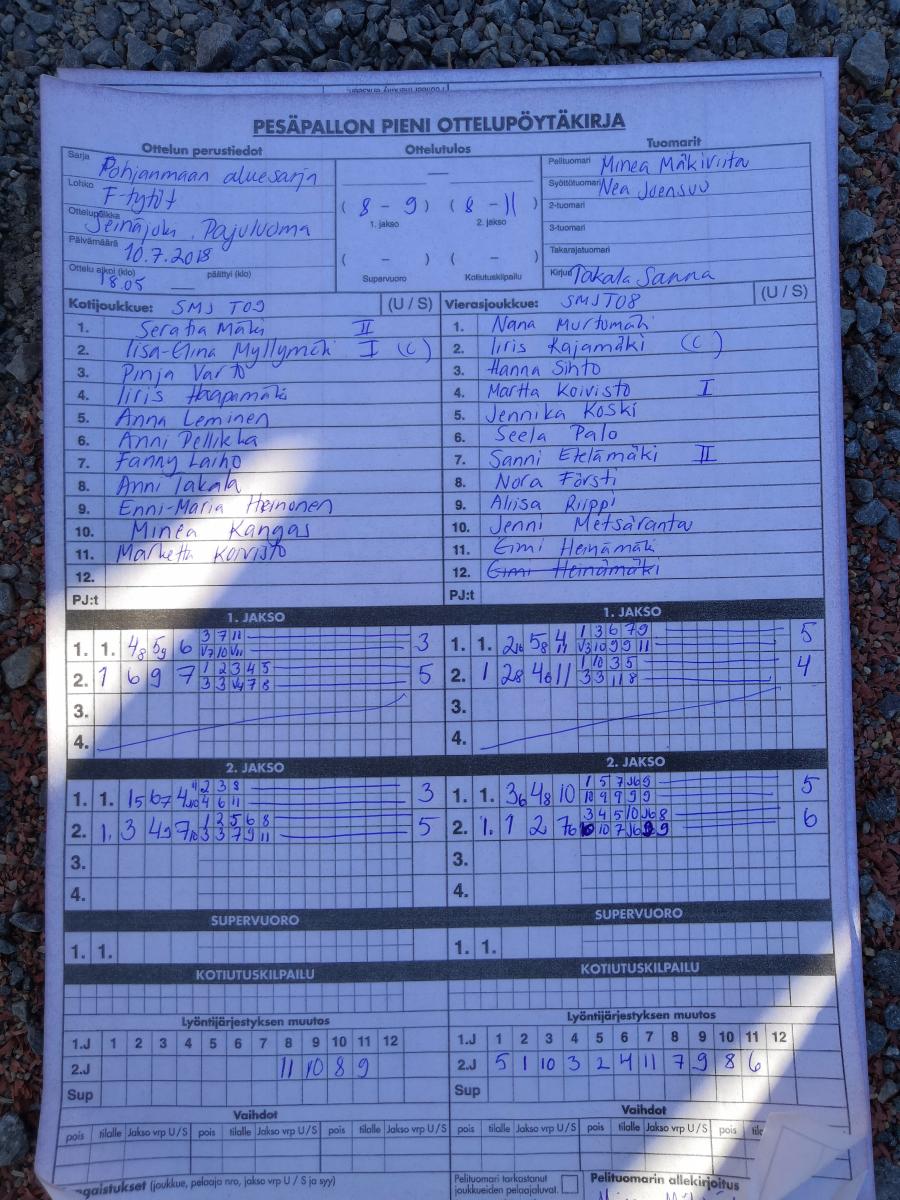 PESÄPALLON PIENI OTTELUPÖYTÄKIRJA
Ottelun perustiedot
Sarja Pohjanmaan aluesarja
Lohko F-tytöt
Ottelupaikka Seinäjoki, Pajuluoma
Päivämäärä 10.7.2018
Ottelu alkoi (klo) 18.05 päättyi (klo)
Ottelutulos
( 8 - 9 ) ( 8 - 11 )
1. jakso 2. jakso
( - ) ( - )
Supervuoro Kotiutuskilpailu
Tuomarit
Pelituomari Minea Mäkiviita
Syöttötuomari Nea Joensuu
2-tuomari
3-tuomari
Takarajatuomari
Kirjuri Takala Sanna
Kotijoukkue: SMJ T09 (U / S)
1. Serafia Mäki II
2. Iisa-Elina Myllymäki I (C)
3. Pinja Varto
4. Iiris Haapamäki
5. Anna Leminen
6. Anni Pellikka
7. Fanny Laiho
8. Anni Takala
9. Enni-Maria Heinonen
10. Minea Kangas
11. Marketta Koivisto
12.
PJ:t
Vierasjoukkue: SMJ T08 (U / S)
1. Nana Murtomäki
2. Iiris Kajamäki (C)
3. Hanna Sihto
4. Martta Koivisto I
5. Jennika Koski
6. Seela Palo
7. Sanni Etelämäki II
8. Nora Försti
9. Aliisa Riippi
10. Jenni Metsäranta
11. Eimi Heinämäki
12. Eimi Heinämäki
PJ:t
1. JAKSO
1. 1. 4 8 5 9 6 3 7 11 3
2. 1 6 9 7 1 2 3 4 5 5
3.
4.
1. JAKSO
1. 1. 5 8 1 3 6 7 9 5
2. 1 28 11 1 10 3 5 4
3.
4.
2. JAKSO
1. 1. 2 3 8 3
4 6 11
2. 1. 3 1 2 5 6 8 5
3 3 7 9 11
3.
4.
2. JAKSO
1. 1. 36 48 10 5
10 9 9 9 9
2. 1. 1 2 6
3.
4.
SUPERVUORO
1. 1.
SUPERVUORO
1. 1.
KOTIUTUSKILPAILU
KOTIUTUSKILPAILU
Lyöntijärjestyksen muutos
1.J 1 2 3 4 5 6 7 8 9 10 11 12
2.J 11 10 8 9
Sup
Lyöntijärjestyksen muutos
1.J 1 2 3 4 5 6 7 8 9 10 11 12
2.J 5 1 10 3 2 4 11 7 9 8 6
Sup
Vaihdot
pois tilalle Jakso vrp U / S pois tilalle Jakso vrp U / S pois tilalle Jakso vrp U / S
Vaihdot
pois tilalle Jakso vrp U / S pois tilalle Jakso vrp U / S pois
gaistukset (joukkue, pelaaja nro, jakso vrp U / S ja syy)
Pelituomari tarkastanut
joukkueiden pelaajaluvat.
Pelituomarin allekirjoitus